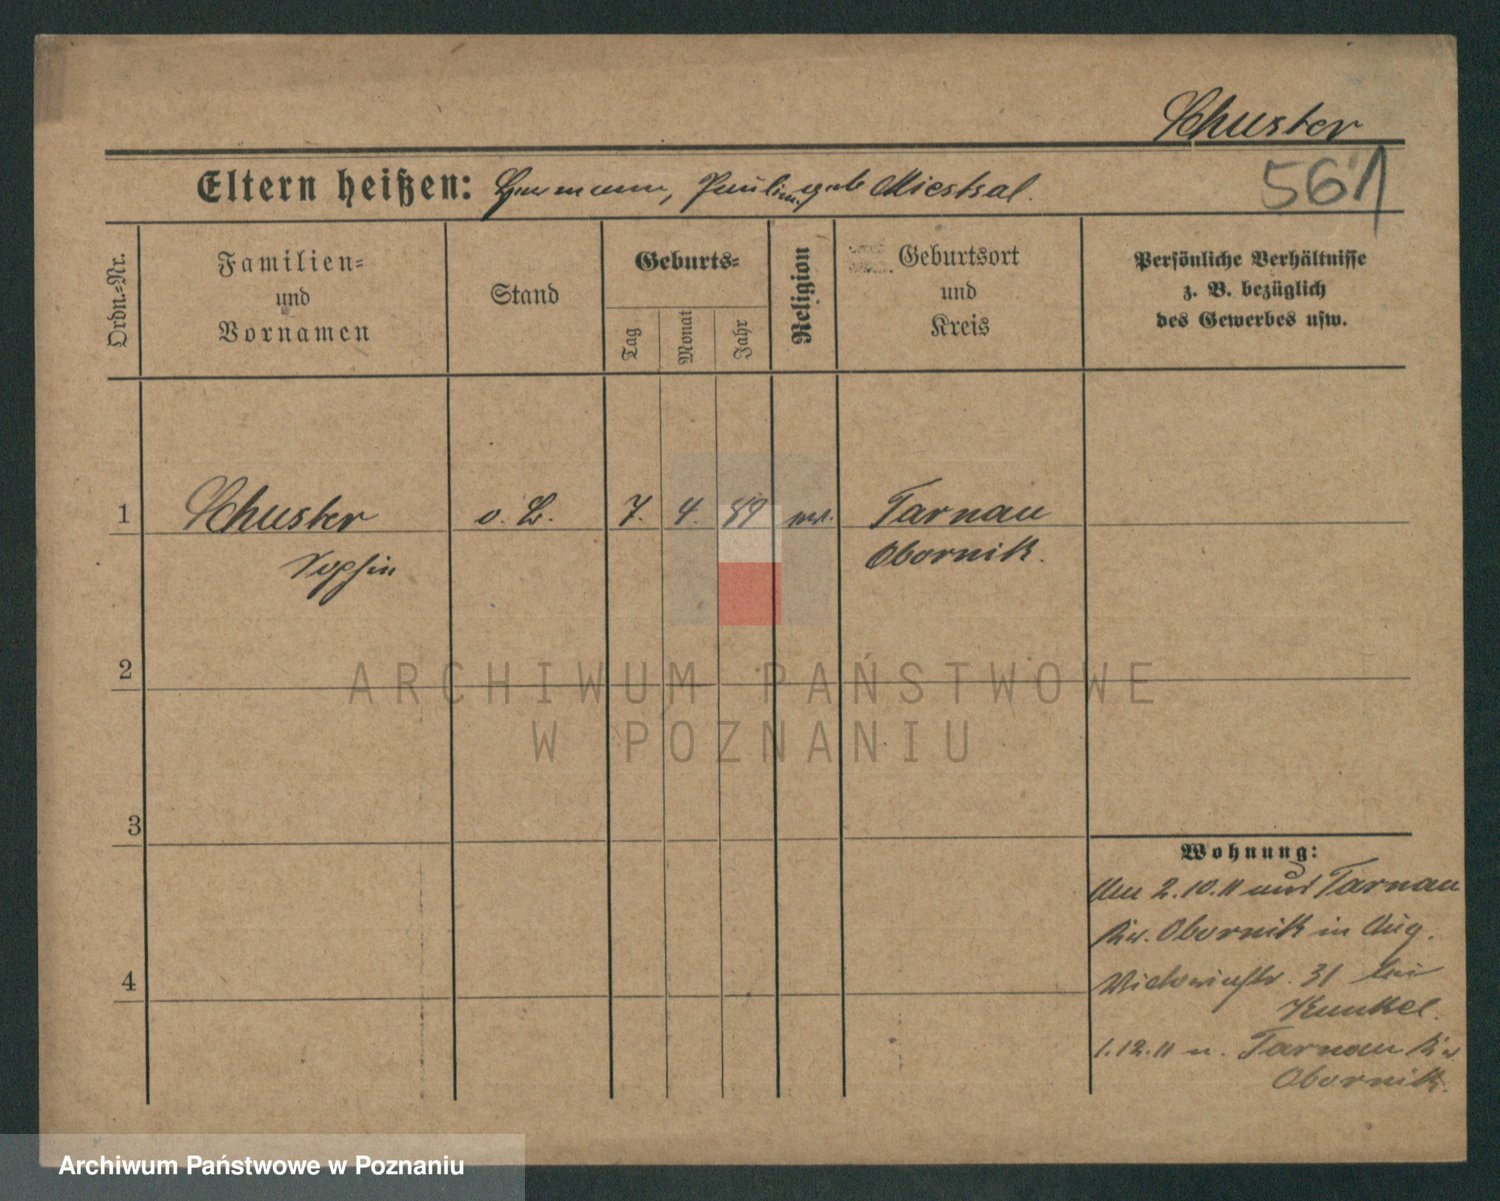 Schuster
561
Eltern heißen: Hermann, Pauline geb. Miestsal.
Ordn.=Nr.
Familien=
und
Vornamen
Stand
Geburts=
Tag
Monat
Jahr
Religion
Geburtsort
und
Kreis
Persönliche Verhältnisse
z. B. bezüglich
des Gewerbes usw.
1 Schuster o. B. 7. 4. 89 ev. Tarnau
Sophie Obornik.
2
3
4
Wohnung:
Am 2.10.11 aus Tarnau
Kr. Obornik in Aug.
Victoriastr. 31 bei
Kunkel.
1.12.11 n. Tarnau Kr
Obornik.
ARCHIWUM PAŃSTWOWE
W POZNANIU
Archiwum Państwowe w Poznaniu